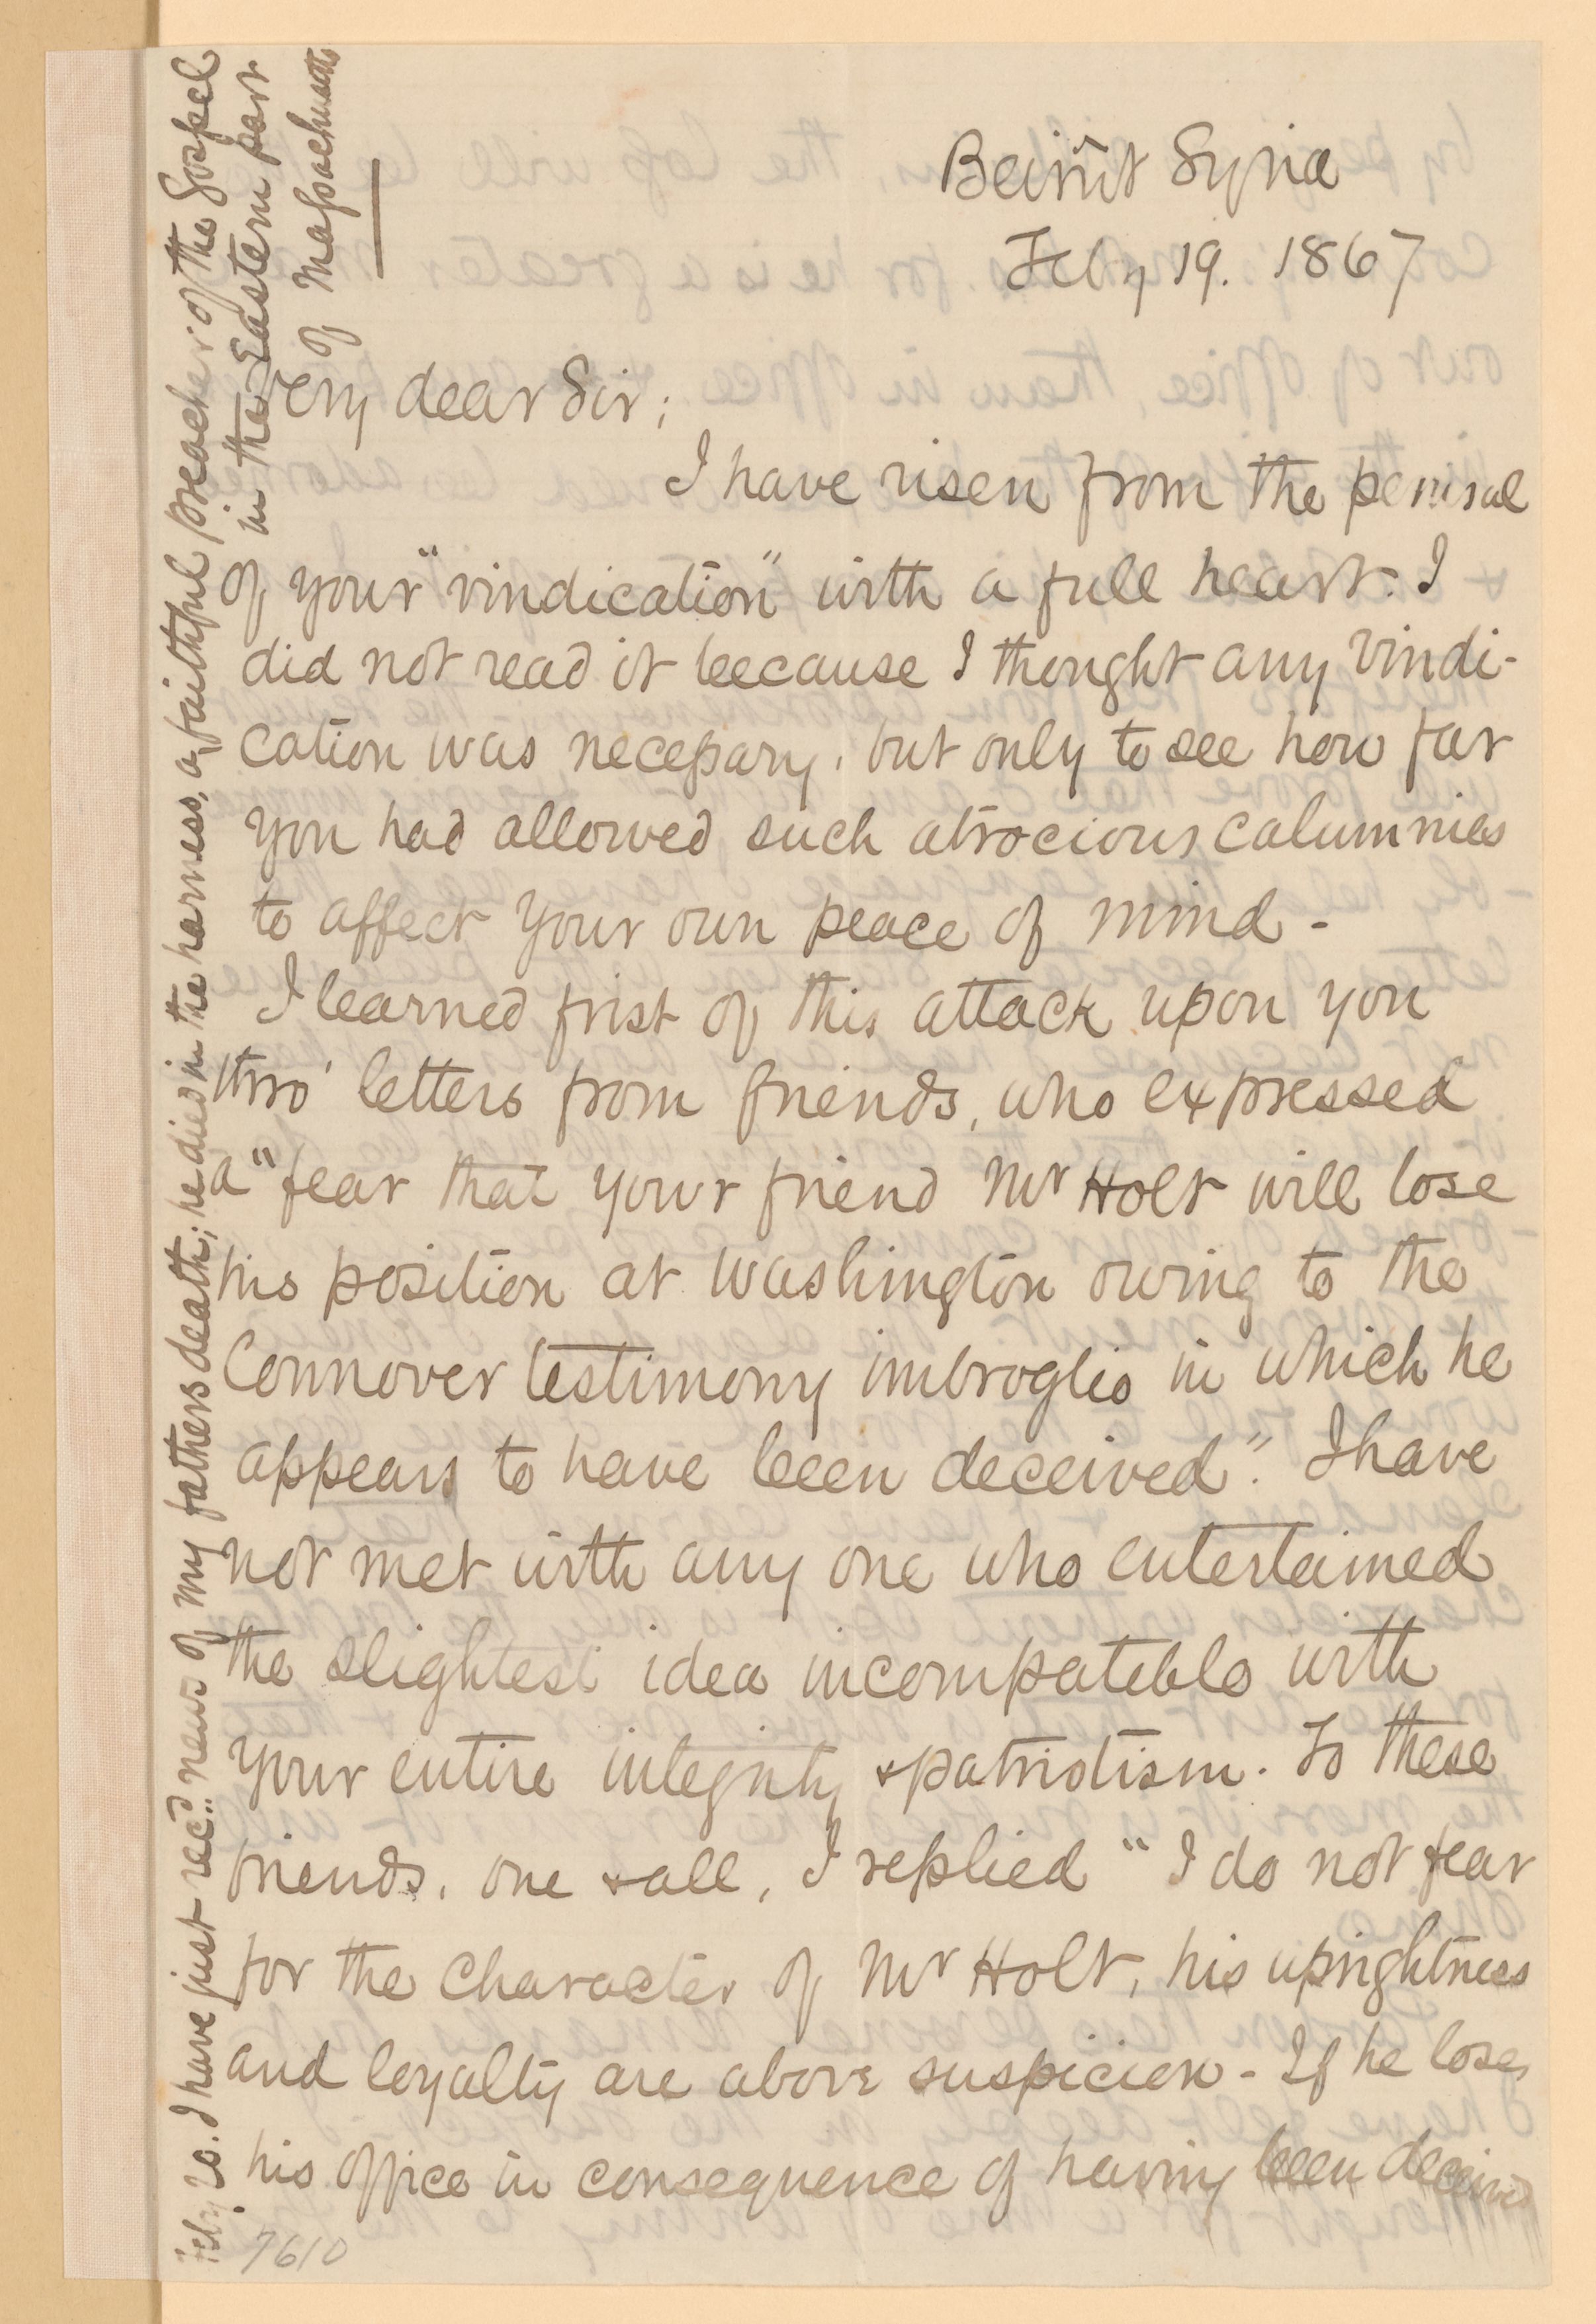 Beirût Syria
Feby 19. 1867
Very dear Sir;
I have risen from the perusal
of your "vindication" with a full heart. I
did not read it because I thought any vindi-
cation was necessary, but only to see how far
you had allowed such atrocious calumnies
to affect your own peace of mind -
I learned first of this attack upon you
thro' letters from friends, who expressed
a "fear that your friend Mr Holt will lose
his position at Washington owing to the
Connover testimony imbroglio in which he
appears to have been deceived". I have
not met with any one who entertained
the slightest idea incompatible with
your entire integrity & patriotism. To these
friends, one & all, I replied "I do not fear
for the character of Mr Holt, his uprightness
and loyalty are above suspicion - If he loses
his office in consequence of having been deceived
7610
Feby 20. I have just recd. news of my fathers death; he died in the harness, a faithful preacher of the Gospel
in the Eastern part
of Massachusetts